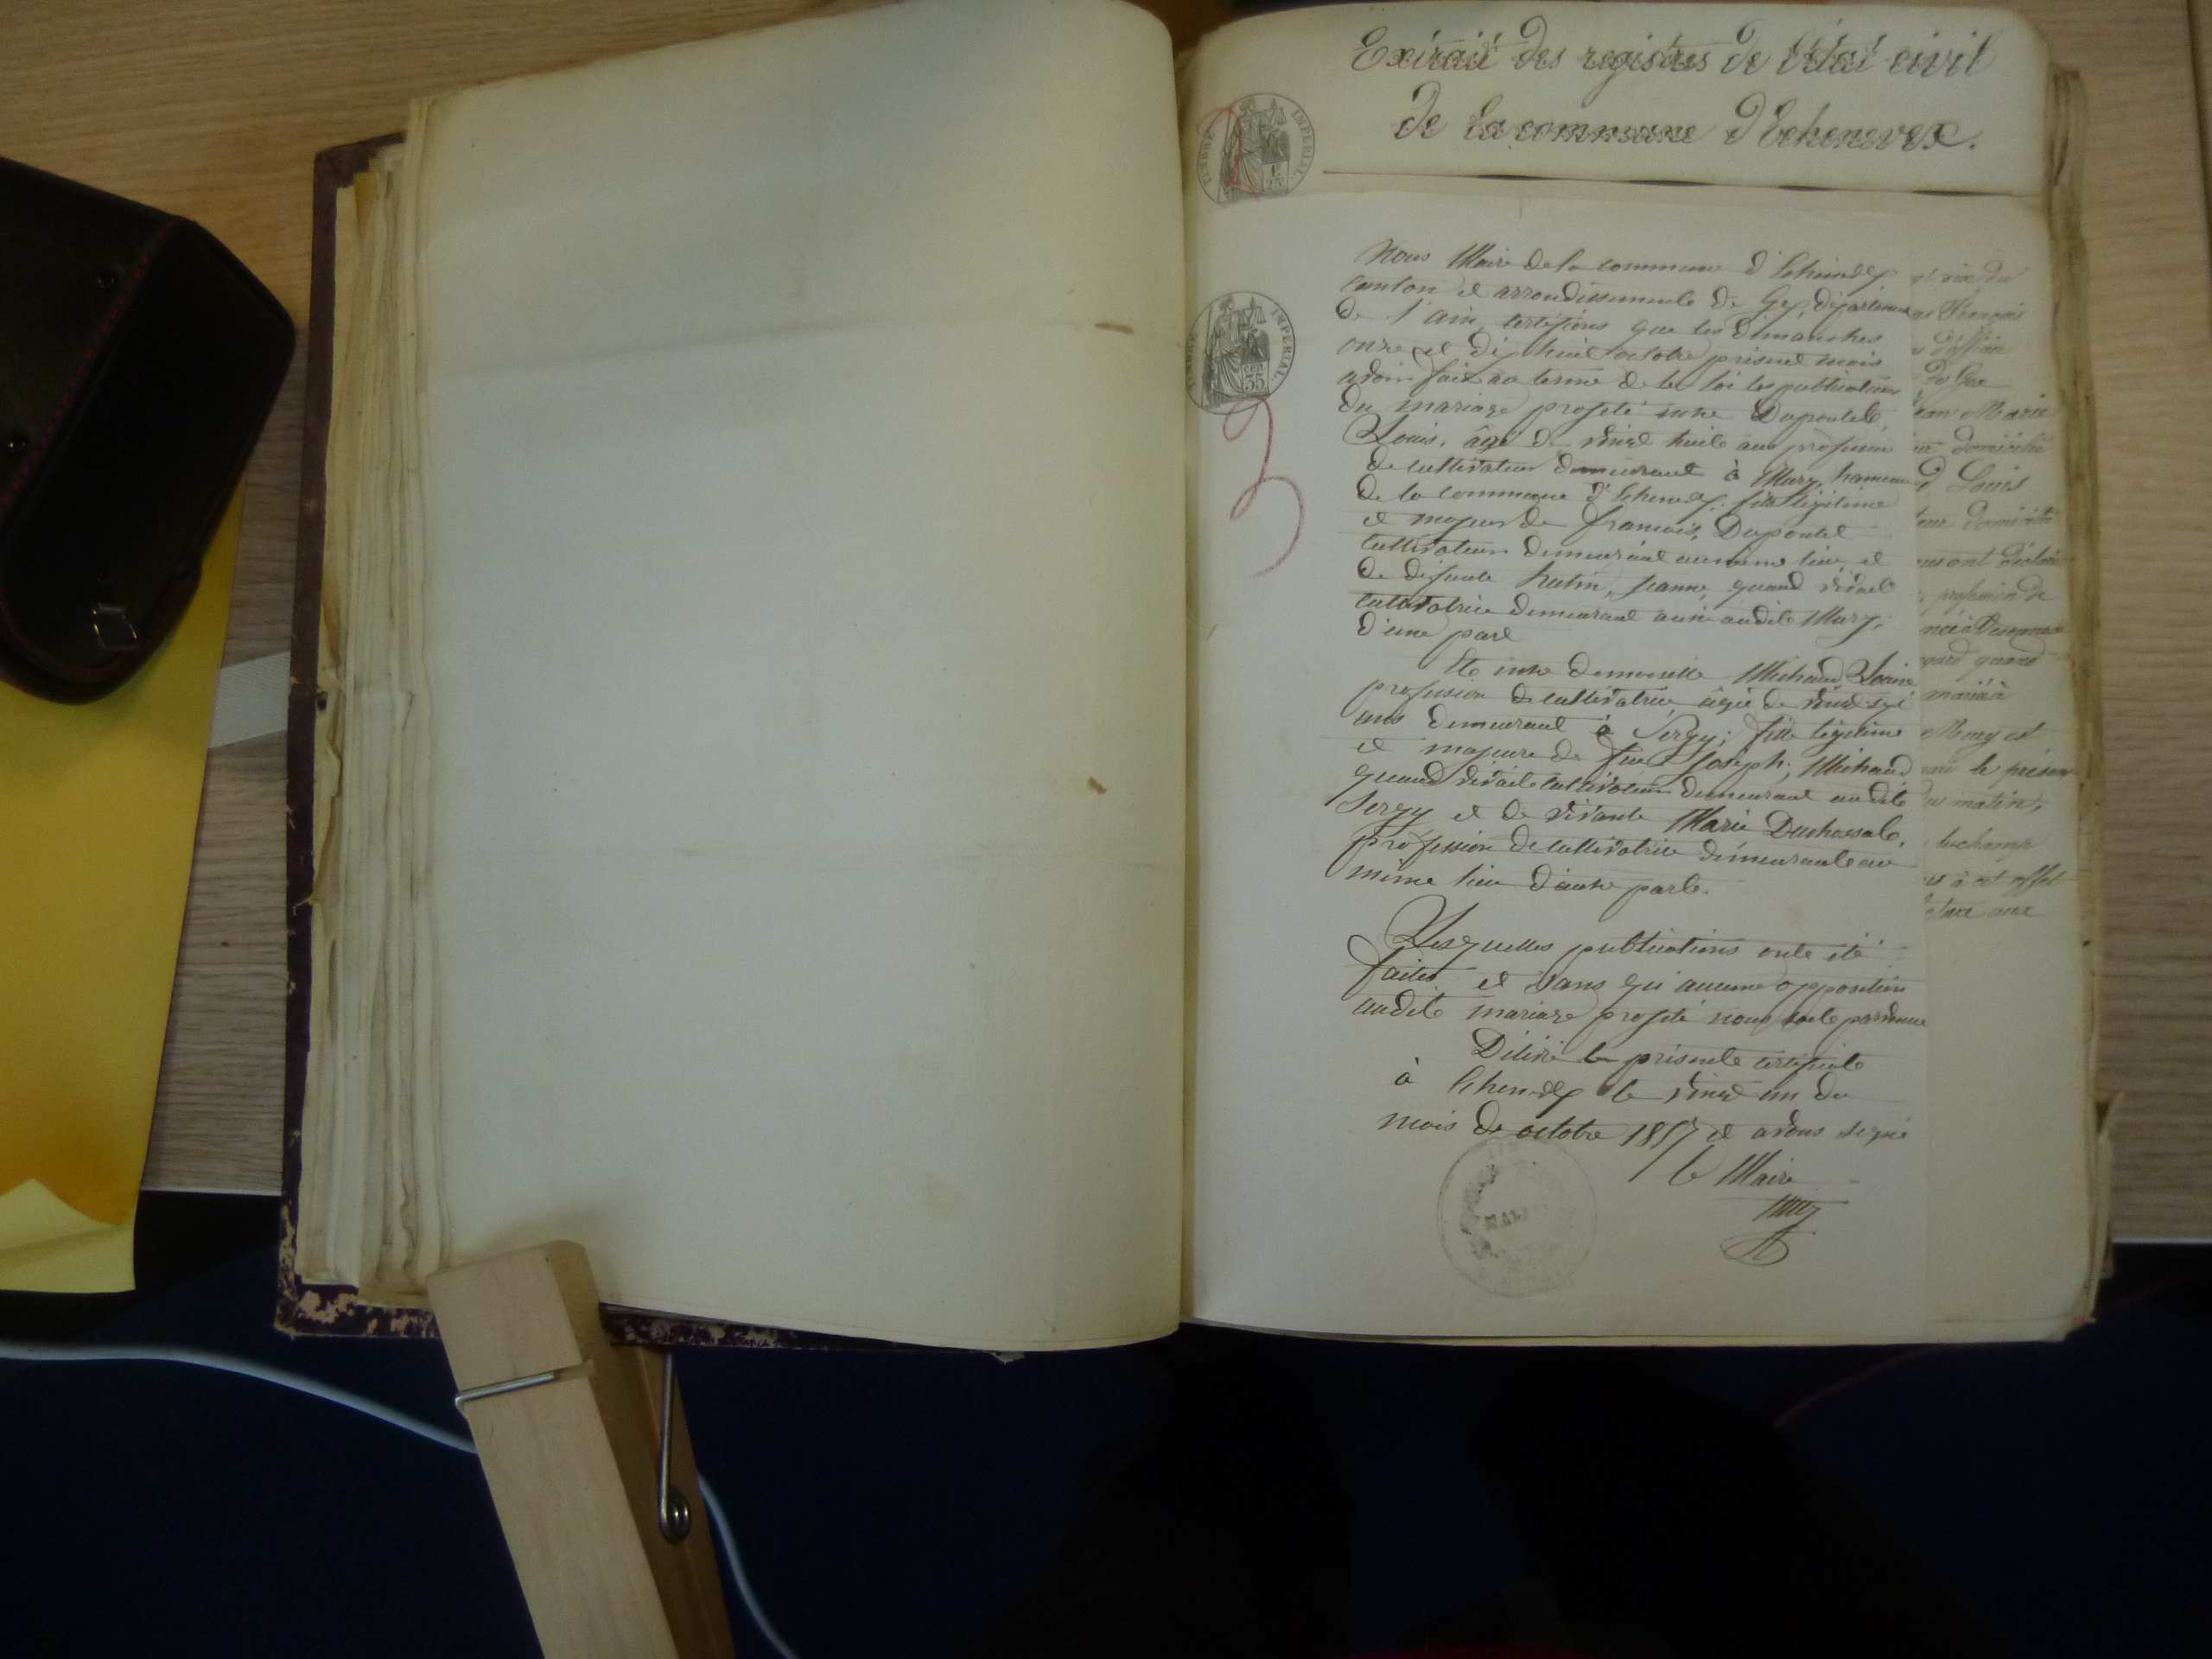 Extrait des registres de l'état civil
de la commune d'Echenevex.
TIMBRE IMPERIAL
1F 25
TIMBRE IMPERIAL
CEN 35
3
Nous Maire de la commune d'Echenevex
canton et arrondissement de Gex, département
De l'ain, certifions que les Dimanches
onze et dix huit octobre présent mois
avoir fait au terme de la loi les publications
du mariage projeté entre Dupontet
Louis, âgé de vingt huit ans profession
de cultivateur demeurant à Mury, hameau
de la commune d'Echenevex, fils légitime
et majeur de francois, Dupontet
cultivateur demeurant au même lieu et
de defunte hutin, Jeanne, quand vivait
cultivatrice demeurant aussi audit Mury,
d'une part
Et entre demoiselle Michaud
profession de cultivatrice, âgée de vingt
ans demeurant à Sergy; fille légitime
et majeure de feu Joseph, Michaud
quand vivait cultivateur demeurant audit
Sergy et de vivante Marie Duchossal,
profession de cultivatrice demeurante au
même lieu d'autre part.
Lesquelles publications ont été
faites et sans qu'aucune opposition
audit mariage projeté nous soit parvenue
Délivré le présente certificat
à Echenevex le vingt un du
mois de octobre 1857 et avons signé
le Maire
François
Jean Marie
domicilié
Louis
domicilié
profession de
quand
mariée à
Mury et
le présent
matin,
à cet effet